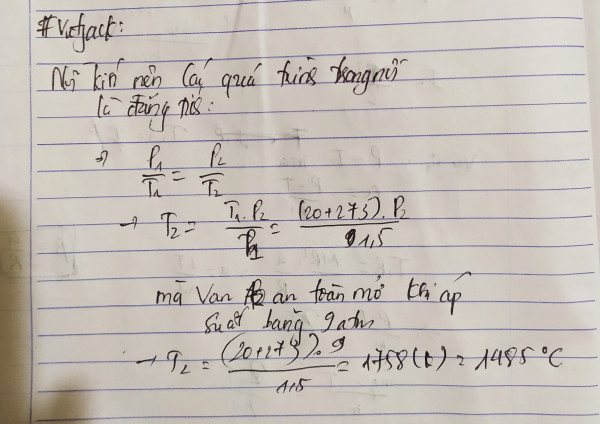 #Vietjack:
Nồi kín nên các quá trình trong nồi
là đẳng tích:
→ P₁/T₁ = P₂/T₂
→ T₂ = T₁.P₂/P₁ = (20+273).P₂/1,5
mà van an toàn mở khi áp
suất bằng 9atm
→ T₂ = (20+273).9/1,5 = 1758(K) = 1485°C